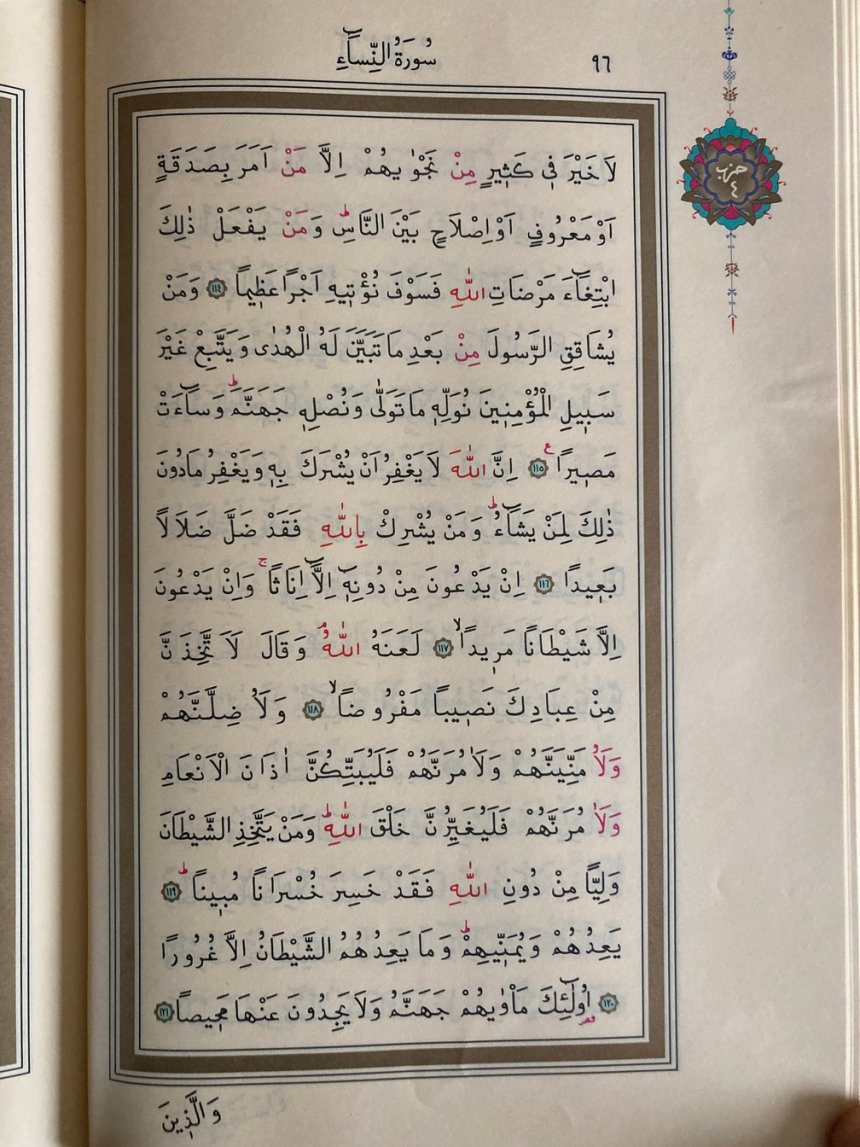 سُورَةُ النِّسَٓاءِ
٩٦
حزب
٤
لَا خَيْرَ ف۪ي كَث۪يرٍ مِنْ نَجْوٰيهُمْ اِلَّا مَنْ اَمَرَ بِصَدَقَةٍ
اَوْ مَعْرُوفٍ اَوْ اِصْلَاحٍ بَيْنَ النَّاسِۜ وَمَنْ يَفْعَلْ ذٰلِكَ
ابْتِغَٓاءَ مَرْضَاتِ اللّٰهِ فَسَوْفَ نُؤْت۪يهِ اَجْرًا عَظ۪يمًا ﴿١١٤﴾ وَمَنْ
يُشَاقِقِ الرَّسُولَ مِنْ بَعْدِ مَا تَبَيَّنَ لَهُ الْهُدٰى وَيَتَّبِعْ غَيْرَ
سَب۪يلِ الْمُؤْمِن۪ينَ نُوَلِّه۪ مَا تَوَلّٰى وَنُصْلِه۪ جَهَنَّمَۜ وَسَٓاءَتْ
مَص۪يرًاۚ ﴿١١٥﴾ اِنَّ اللّٰهَ لَا يَغْفِرُ اَنْ يُشْرَكَ بِه۪ وَيَغْفِرُ مَا دُونَ
ذٰلِكَ لِمَنْ يَشَٓاءُۜ وَمَنْ يُشْرِكْ بِاللّٰهِ فَقَدْ ضَلَّ ضَلَالًا
بَع۪يدًا ﴿١١٦﴾ اِنْ يَدْعُونَ مِنْ دُونِه۪ٓ اِلَّٓا اِنَاثًاۚ وَاِنْ يَدْعُونَ
اِلَّا شَيْطَانًا مَر۪يدًاۙ ﴿١١٧﴾ لَعَنَهُ اللّٰهُۢ وَقَالَ لَاَتَّخِذَنَّ
مِنْ عِبَادِكَ نَص۪يبًا مَفْرُوضًاۙ ﴿١١٨﴾ وَلَاُضِلَّنَّهُمْ
وَلَاُمَنِّيَنَّهُمْ وَلَاٰمُرَنَّهُمْ فَلَيُبَتِّكُنَّ اٰذَانَ الْاَنْعَامِ
وَلَاٰمُرَنَّهُمْ فَلَيُغَيِّرُنَّ خَلْقَ اللّٰهِۜ وَمَنْ يَتَّخِذِ الشَّيْطَانَ
وَلِيًّا مِنْ دُونِ اللّٰهِ فَقَدْ خَسِرَ خُسْرَانًا مُب۪ينًاۜ ﴿١١٩﴾
يَعِدُهُمْ وَيُمَنّ۪يهِمْۜ وَمَا يَعِدُهُمُ الشَّيْطَانُ اِلَّا غُرُورًا
﴿١٢٠﴾ اُو۬لٰٓئِكَ مَأْوٰيهُمْ جَهَنَّمُۘ وَلَا يَجِدُونَ عَنْهَا مَح۪يصًا ﴿١٢١﴾
وَالَّذ۪ينَ